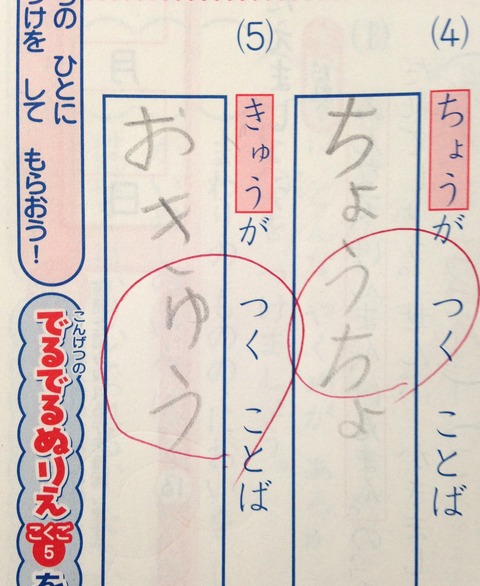 (4)
ちょうが つく ことば
ちょうちょ
(5)
きゅうが つく ことば
おきゅう
の ひとに
つけを して もらおう!
こんげつの
でるでるぬりえ
こくご
5
を